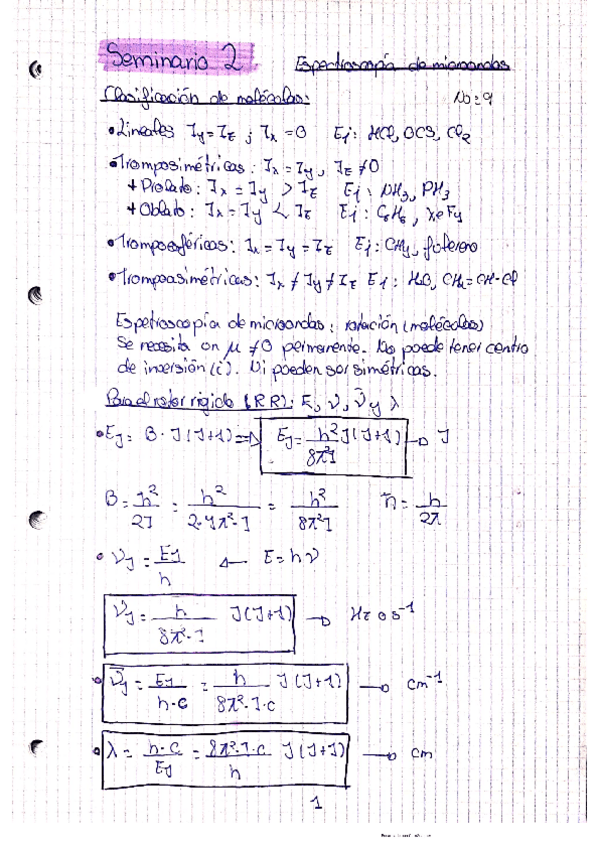 Seminario 2 Espectroscopía de microondas
Clasificación de moléculas: No: 9
• Lineales Iy = Iz ; Ix = 0 Ej: HCl, OCS, Cl2
• Tromposimétricas: Ix = Iy, Iz ≠ 0
+ Prolato: Ix = Iy > Iz Ej: NH3, PH3
+ Oblato: Ix = Iy < Iz Ej: C6H6, XeF4
• Trompoesféricas: Ix = Iy = Iz Ej: CH4, fulereno
• Trompoasimétricas: Ix ≠ Iy ≠ Iz Ej: H2O, CH2=CH-Cl
Espectroscopía de microondas: rotación (moléculas)
Se necesita un μ ≠ 0 permanente. No puede tener centro
de inversión (i). Ni pueden ser simétricas.
Para el rotor rígido (RR): E, ν, ν̄ y λ
• EJ = B · J(J+1) ⇒ EJ = h²/8π²I J(J+1) → J
B = ħ²/2I = h²/2·4π²·I = h²/8π²I ħ = h/2π
• νJ = EJ/h ← E = hν
νJ = h/8π²·I J(J+1) → Hz o s⁻¹
• ν̄J = EJ/h·c = h/8π²·I·c J(J+1) → cm⁻¹
• λ = h·c/EJ = 8π²·I·c/h J(J+1) → cm
1